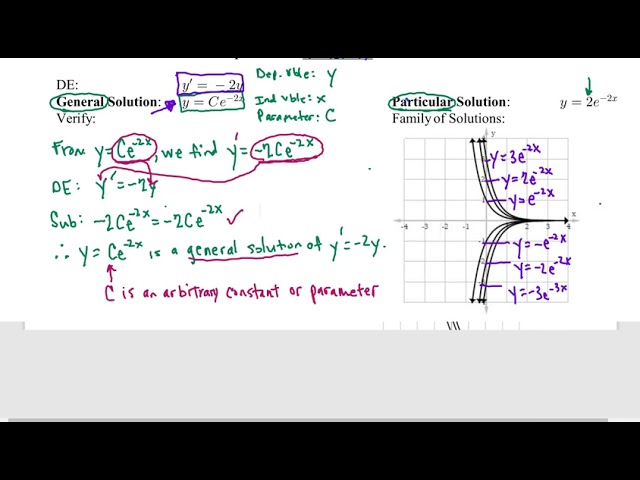 DE: y' = −2y
General Solution: y = Ce^{-2x}
Verify:
Dep. vble: y
Ind vble: x
Parameter: C
From y = Ce^{-2x}, we find y' = -2Ce^{-2x}
DE: y' = -2y
Sub: -2Ce^{-2x} = -2Ce^{-2x} ✓
∴ y = Ce^{-2x} is a general solution of y' = -2y.
C is an arbitrary constant or parameter
Particular Solution: y = 2e^{-2x}
Family of Solutions:
y
y = 3e^{-2x}
y = 2e^{-2x}
y = e^{-2x}
x
-4 -3 -2 -1 0 1 2 3 4
y = -e^{-2x}
y = -2e^{-2x}
y = -3e^{-3x}